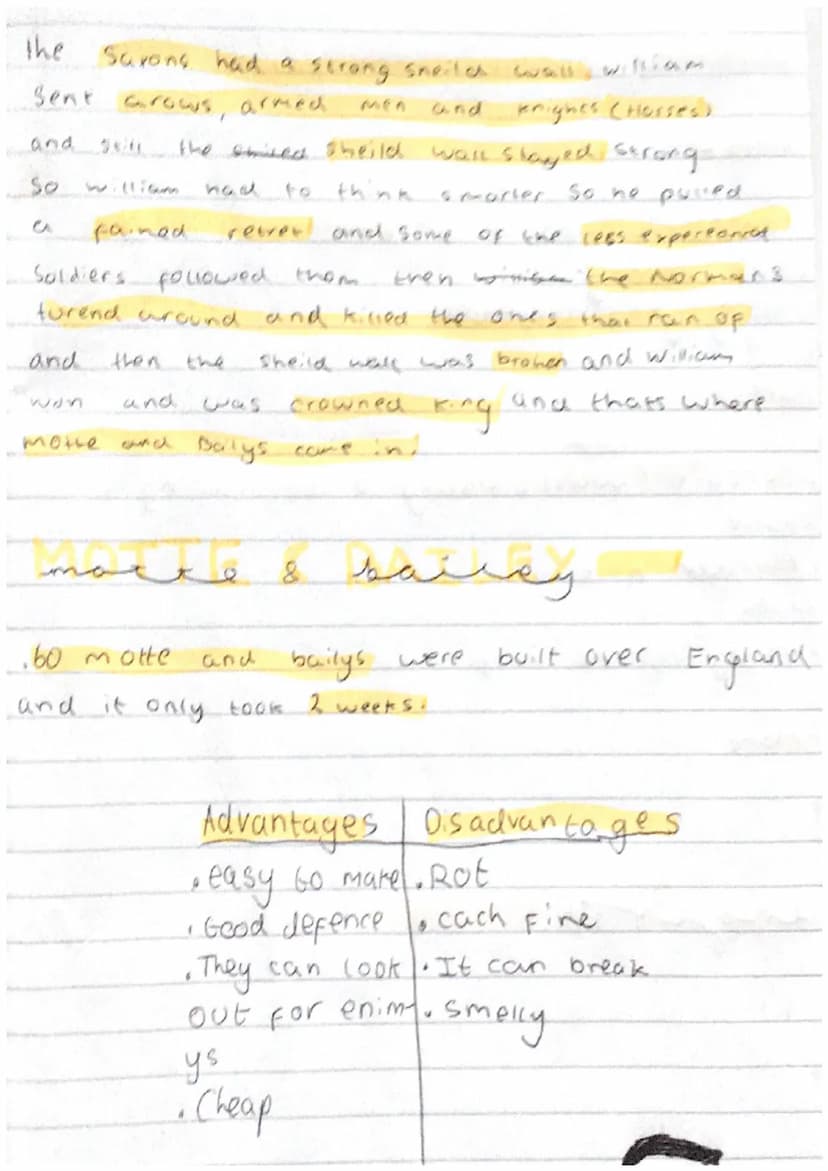 the Saxons had a strong sheild wall, william
Sent arows, armed men and knights (Horses)
and still the sheild wall stayed strong
So william had to think smarter so he pulled
a fained retret and some of the less expereanst
Soldiers followed them then the Normans
turend around and killed the ones that ran of
and then the sheild wall was broken and william
won and was crowned king and thats where
motte and bailys came in!
MOTTE & BAILEY
motte & bailey
.60 motte and bailys were built over England
and it only took 2 weeks.
Advantages Disadvantages
. easy to make . Rot
. Good defence . cach Fire
. They can look . It can break
out for enim- . smelly
ys
. Cheap